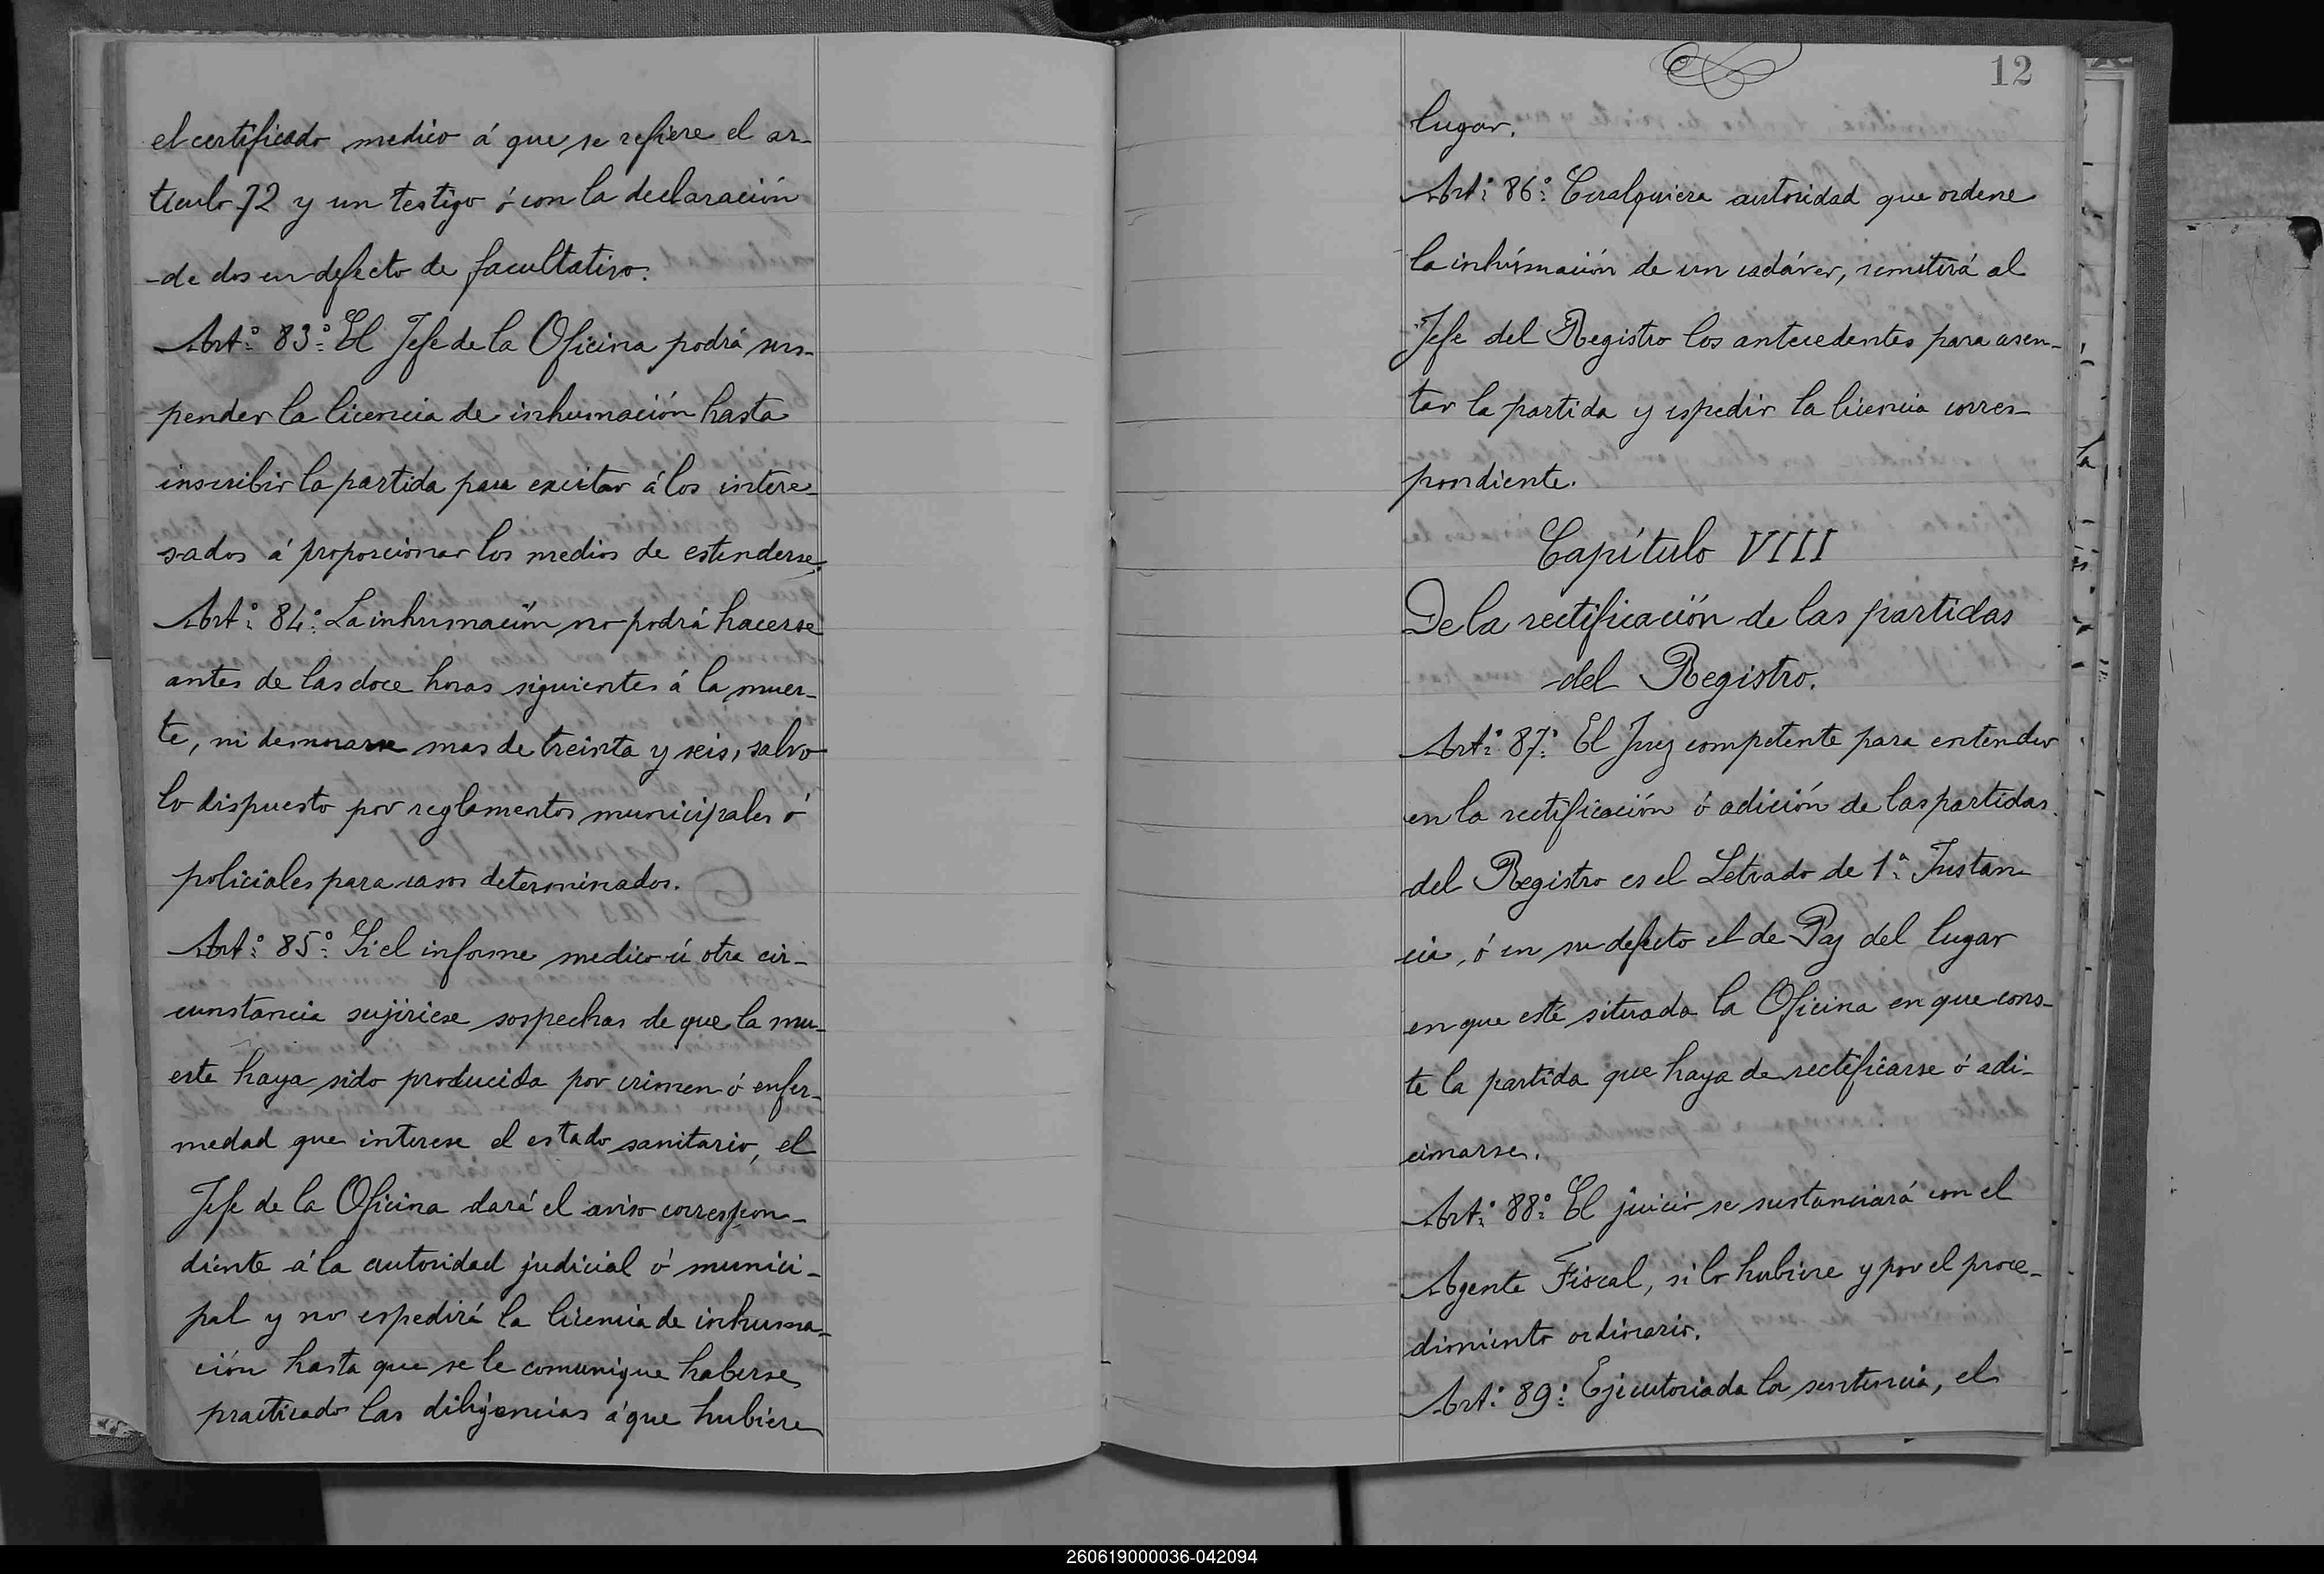 el certificado medico á que se refiere el ar-
ticulo 72 y un testigo ó con la declaración
de dos en defecto de facultativo.
Art.º 83.º El Jefe de la Oficina podrá sus-
pender la licencia de inhumación hasta
inscribir la partida para excitar á los intere-
sados á proporcionar los medios de estenderse.
Art.º 84.º La inhumación no podrá hacerse
antes de las doce horas siguientes á la muer-
te, ni demorarse mas de treinta y seis, salvo
lo dispuesto por reglamentos municipales ó
policiales para casos determinados.
Art.º 85.º Si el informe medico ú otra cir-
cunstancia sujiriese sospechas de que la mu-
erte haya sido producida por crimen ó enfer-
medad que interese el estado sanitario, el
Jefe de la Oficina dará el aviso correspon-
diente á la autoridad judicial ó munici-
pal y no espedirá la licencia de inhuma-
ción hasta que se le comunique haberse
practicado las diligencias á que hubiere
12
lugar.
Art.º 86.º Cualquiera autoridad que ordene
la inhumación de un cadáver, remitirá al
Jefe del Registro los antecedentes para asen-
tar la partida y espedir la licencia corres-
pondiente.
Capítulo VIII
De la rectificación de las partidas
del Registro.
Art.º 87.º El Juez competente para entender
en la rectificación ó adición de las partidas
del Registro es el Letrado de 1.ª Instan-
cia, ó en su defecto el de Paz del lugar
en que esté situada la Oficina en que cons-
te la partida que haya de rectificarse ó adi-
cionarse.
Art.º 88.º El juicio se sustanciará con el
Agente Fiscal, si lo hubiere y por el proce-
dimiento ordinario.
Art.º 89.º Ejecutoriada la sentencia, el
260619000036-042094